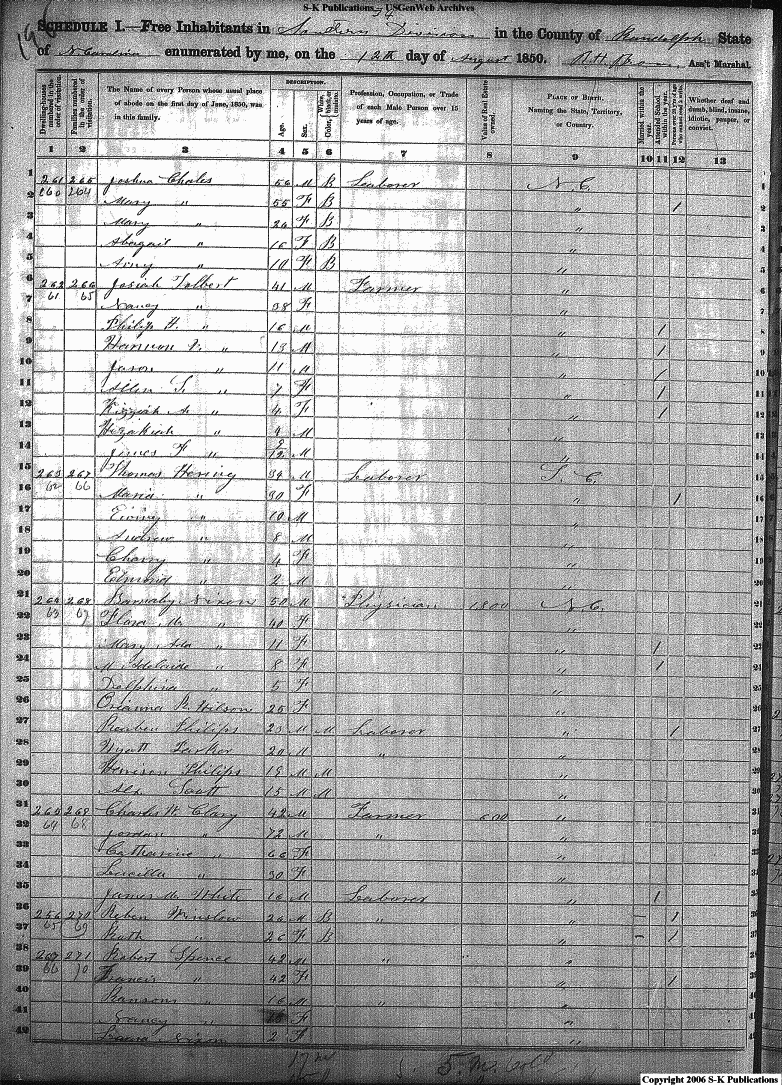 S-K Publications - USGenWeb Archives
SCHEDULE I.—Free Inhabitants in Southern Division in the County of Randolph State
of N Carolina enumerated by me, on the 12th day of August 1850. Ass't Marshal.
Dwelling-houses numbered in the order of visitation. Families numbered in the order of visitation. The Name of every Person whose usual place of abode on the first day of June, 1850, was in this family. DESCRIPTION. Age. Sex. Color, White, black, or mulatto. Profession, Occupation, or Trade of each Male Person over 15 years of age. Value of Real Estate owned. PLACE OF BIRTH. Naming the State, Territory, or Country. Married within the year. Attended School within the year. Persons over 20 y'rs of age who cannot read & write. Whether deaf and dumb, blind, insane, idiotic, pauper, or convict.
1 2 3 4 5 6 7 8 9 10 11 12 13
1 261 265 Joshua Chales 56 M B Laborer N.C. 1
2 260 264 Mary " 55 F B " / 2
3 Mary " 24 F B " 3
4 Abagail " 16 F B " 4
5 Amy " 10 F B " 5
6 262 266 Josiah Tolbert 41 M Farmer " 6
7 61 65 Nancy " 38 F " 7
8 Philip H. " 16 M " / 8
9 " 13 M " / 9
10 Jason " 11 M " / 10
11 Allen S. " 7 F " / 11
12 Kizziah A. " 4 F " / 12
13 Hezakiah " 4 M " 13
14 James F " 2/12 M " 14
15 263 267 Thomas Hening 34 M Laborer S.C. 15
16 62 66 Maria " 30 F " / 16
17 " 10 M " 17
18 Andrew " 8 M " 18
19 Charry " 4 F " 19
20 Edmond " 2 M " 20
21 264 268 Barnaby Nixon 50 M Physician 1800 N.C. 21
22 63 67 Flora M. " 40 F " 22
23 Mary Ada " 11 F " / 23
24 M. Adelaide " 8 F " / 24
25 Delphina " 5 F " 25
26 Orianna R. Wilson 25 F " 26
27 Reuben Philips 23 M M Laborer " / 27
28 Wyatt Parker 20 M " " 28
29 Harrison Philips 19 M M " 29
30 Alx Scott 15 M M " 30
31 265 269 Charles W. Clary 42 M Farmer 600 " 31
32 64 68 Jordan " 72 M " " 32
33 Catharine " 66 F " 33
34 Lucilla " 30 F " 34
35 James M. White 16 M Laborer " / 35
36 256 270 Reben Winslow 24 M B " " – / 36
37 65 69 Ruth " 26 F B " – / 37
38 267 271 Robert Spence 42 M " " 38
39 66 70 Francis " 42 F " / 39
40 Ransom " 16 M " " 40
41 Nancy " F " 41
42 Laura Nixon 2 F "
Copyright 2006 S-K Publications